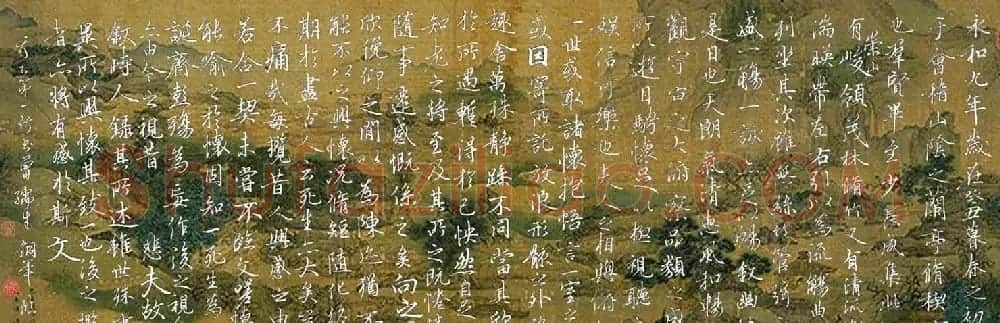 永和九年歲在癸丑暮春之初
于會稽山陰之蘭亭脩禊
也羣賢畢至少長咸集此
有崇山峻領茂林脩竹又有清流
湍暎帶左右引以為流觴曲
列坐其次雖無絲竹管弦
盛一觴一詠亦足以暢敘幽
是日也天朗氣清惠風和暢
觀宇宙之大俯察品類之
所以遊目騁懷足以極視聽
娛信可樂也夫人之相與俯
一世或取諸懷抱悟言一室
或因寄所託放浪形骸之外
趣舍萬殊靜躁不同當其欣
於所遇暫得於己快然自足
知老之將至及其所之既惓
隨事遷感慨係之矣向之
欣俛仰之閒以為陳迹猶不
能不以之興懷況脩短隨化
期於盡古人云死生亦大矣豈
不痛哉每攬昔人興感之由
若合一契未嘗不臨文嗟悼
能喻之於懷固知一死生為
誕齊彭殤為妄作後之視今
亦由今之視昔悲夫故
敘時人錄其所述雖世殊
異所以興懷其致一也後之攬
者亦將有感於斯文
Shufazihua.COM